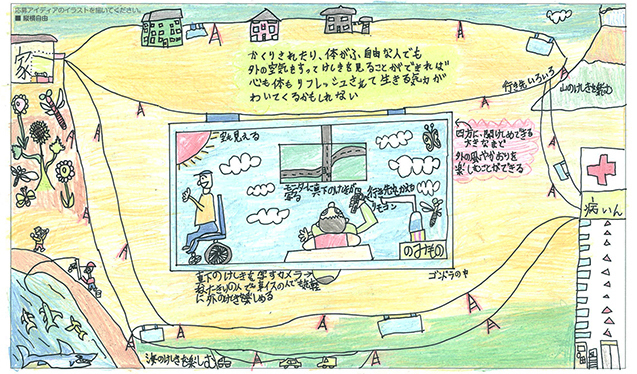 応募アイディアのイラストを描いてください。
■ 縦横自由
家
かくりされたり、体がふ自由な人でも
外の空気をすってけしきを見ることができれば
心も体もリフレッシュされて生きる気力が
わいてくるかもしれない
行き先いろいろ
山のけしきを楽しむ
空も見える
四方に開けしめできる
大きなまど
外の風やかおりを
楽しむことができる
モニターに真下のけしきが
写る
行き先をかえる
リモコン
のみもの
病いん
真下のけしきを写すカメラ→
ねたきりの人でも車イスの人でも気軽
に外のけしきを楽しめる
ゴンドラの中
海のけしきを楽しむ